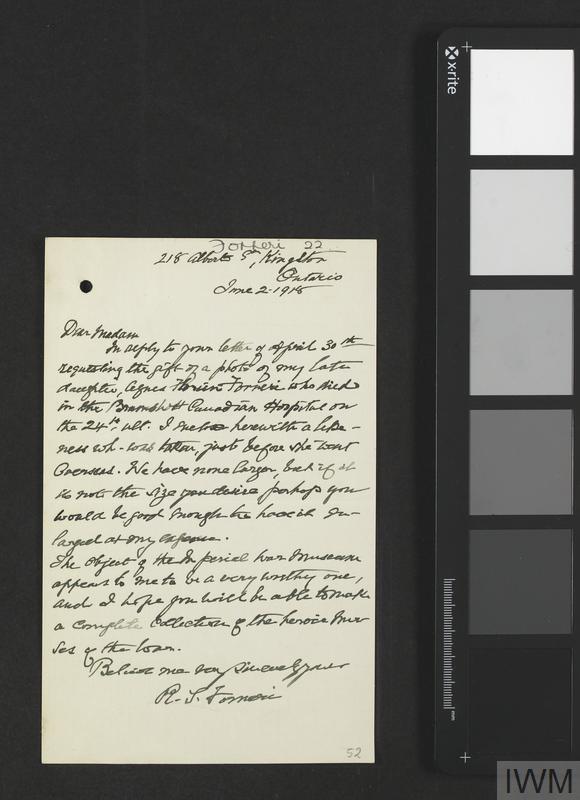 Forneri 22
218 Albert St, Kingston
Ontario
June 2 - 1918
Dear Madam
In reply to your letter of April 30th
requesting the gift of a photo of my late
daughter, Agnes Florien Forneri who died
in the Bramshott Canadian Hospital on
the 24th ult. I enclose herewith a like-
ness wh. was taken just before she went
Overseas. We have none larger, but if it
is not the size you desire perhaps you
would be good enough to have it en-
larged at my expense.
The object of the Imperial War Museum
appears to me to be a very worthy one,
and I hope you will be able to make
a complete collection of the heroic Nur
ses of the War.
Believe me very sincerely yours
R. S. Forneri
52
x-rite
mm
IWM